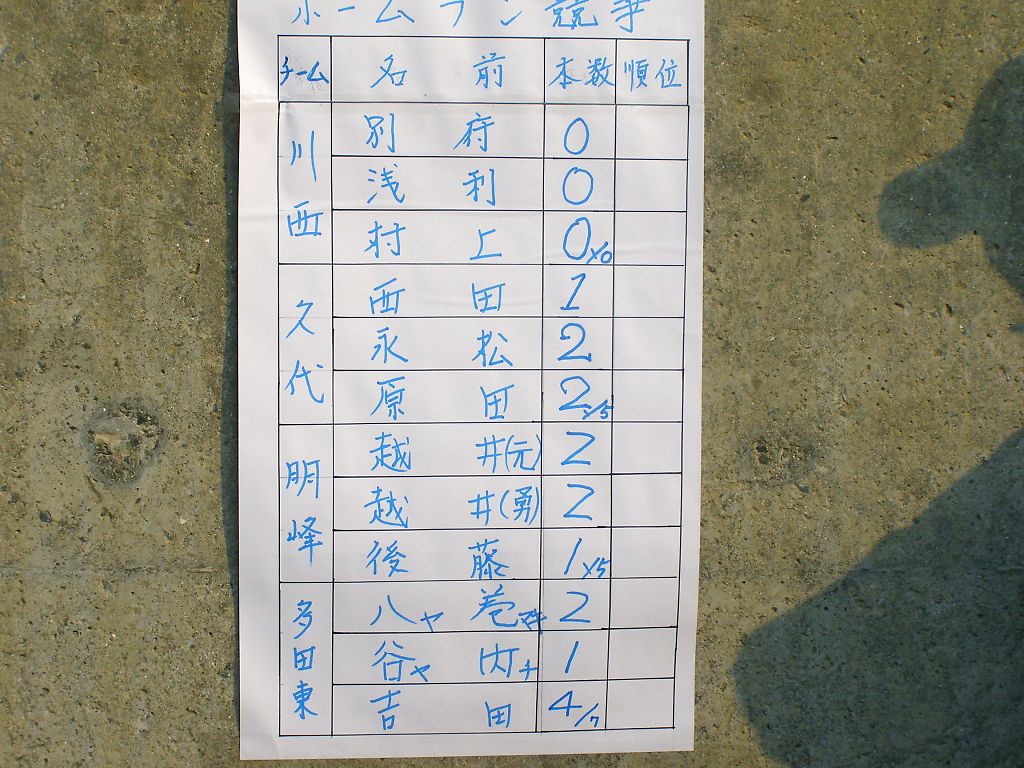 ホームラン競争
チーム 名前 本数 順位
川西 別府 0
浅利 0
村上 0 ×0
久代 西田 1
永松 2
原田 2 ×5
明峰 越井(元) 2
越井(勇) 2
後藤 1 ×5
多田東 八ヤ巻マキ 2
谷ヤ内チ 1
吉田 4 /7